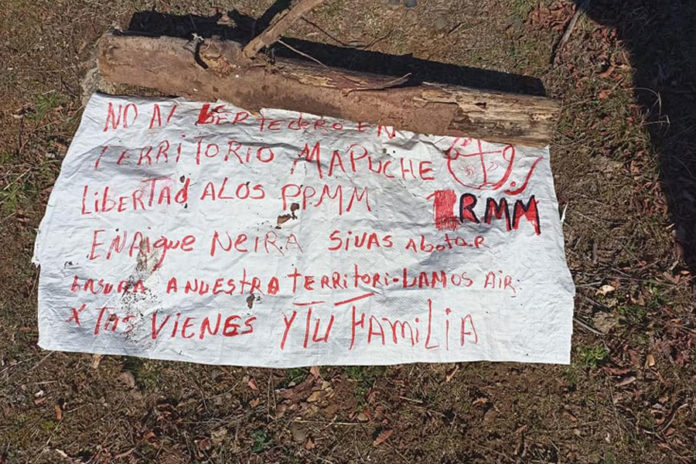 NO AL BERTEDERO EN
TERRITORIO MAPUCHE
LIBERTAD A LOS PPMM
RMM
ENRIQUE NEIRA SIVAS ABOTAR
BASURA A NUESTRA TERRITORI. BAMOS A IR.
X TAS VIENES Y TU FAMILIA